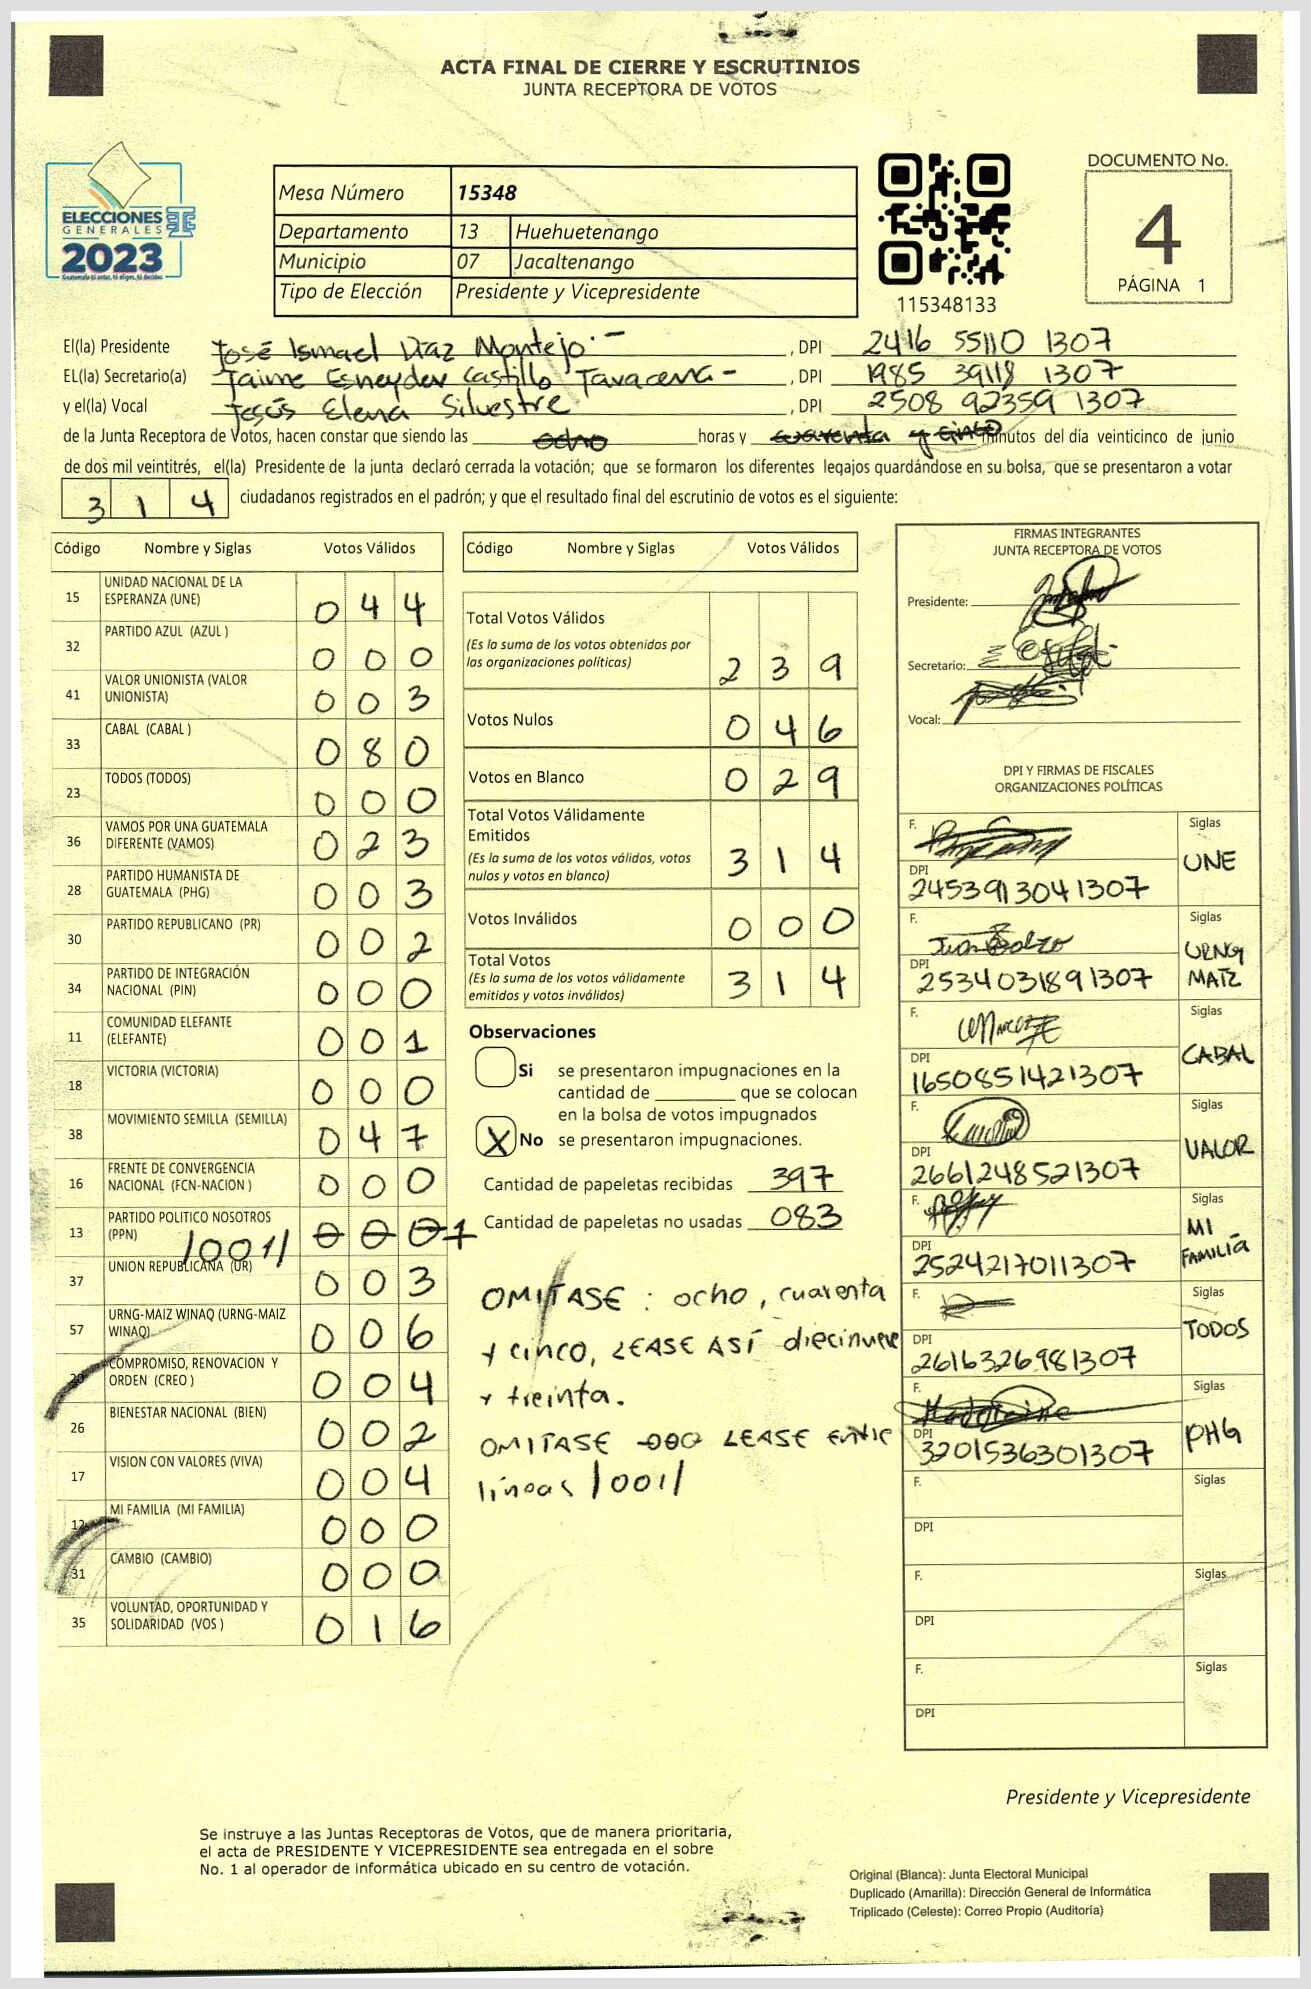 ACTA FINAL DE CIERRE Y ESCRUTINIOS
JUNTA RECEPTORA DE VOTOS
ELECCIONES
GENERALES
2023
Mesa Número 15348
Departamento 13 Huehuetenango
Municipio 07 Jacaltenango
Tipo de Elección Presidente y Vicepresidente
115348133
DOCUMENTO No.
4
PÁGINA 1
El(la) Presidente José Ismael Díaz Montejo.- , DPI 2416 55110 1307
EL(la) Secretario(a) Jaime Esneyder Castillo Taracena- , DPI 1985 39118 1307
y el(la) Vocal Jesús Elena Silvestre , DPI 2508 92359 1307
de la Junta Receptora de Votos, hacen constar que siendo las ocho horas y cuarenta y cinco minutos del día veinticinco de junio
de dos mil veintitrés, el(la) Presidente de la junta declaró cerrada la votación; que se formaron los diferentes legajos guardándose en su bolsa, que se presentaron a votar
314 ciudadanos registrados en el padrón; y que el resultado final del escrutinio de votos es el siguiente:
Código Nombre y Siglas Votos Válidos
15 UNIDAD NACIONAL DE LA ESPERANZA (UNE) 044
32 PARTIDO AZUL (AZUL ) 000
41 VALOR UNIONISTA (VALOR UNIONISTA) 003
33 CABAL (CABAL ) 080
23 TODOS (TODOS) 000
36 VAMOS POR UNA GUATEMALA DIFERENTE (VAMOS) 023
28 PARTIDO HUMANISTA DE GUATEMALA (PHG) 003
30 PARTIDO REPUBLICANO (PR) 002
34 PARTIDO DE INTEGRACIÓN NACIONAL (PIN) 000
11 COMUNIDAD ELEFANTE (ELEFANTE) 001
18 VICTORIA (VICTORIA) 000
38 MOVIMIENTO SEMILLA (SEMILLA) 047
16 FRENTE DE CONVERGENCIA NACIONAL (FCN-NACION ) 000
13 PARTIDO POLITICO NOSOTROS (PPN) /001/ 000
37 UNION REPUBLICANA (UR) 003
57 URNG-MAIZ WINAQ (URNG-MAIZ WINAQ) 006
20 COMPROMISO, RENOVACION Y ORDEN (CREO ) 004
26 BIENESTAR NACIONAL (BIEN) 002
17 VISION CON VALORES (VIVA) 004
12 MI FAMILIA (MI FAMILIA) 000
31 CAMBIO (CAMBIO) 000
35 VOLUNTAD, OPORTUNIDAD Y SOLIDARIDAD (VOS ) 016
Código Nombre y Siglas Votos Válidos
Total Votos Válidos 239
(Es la suma de los votos obtenidos por
las organizaciones políticas)
Votos Nulos 046
Votos en Blanco 029
Total Votos Válidamente
Emitidos 314
(Es la suma de los votos válidos, votos
nulos y votos en blanco)
Votos Inválidos 000
Total Votos 314
(Es la suma de los votos válidamente
emitidos y votos inválidos)
Observaciones
Si se presentaron impugnaciones en la
cantidad de ________ que se colocan
en la bolsa de votos impugnados
X No se presentaron impugnaciones.
Cantidad de papeletas recibidas 397
Cantidad de papeletas no usadas 083
OMITASE : ocho, cuarenta
y cinco, LEASE ASÍ diecinueve
y treinta.
OMITASE 000 LEASE entre
líneas /001/
FIRMAS INTEGRANTES
JUNTA RECEPTORA DE VOTOS
Presidente:
Secretario:
Vocal:
DPI Y FIRMAS DE FISCALES
ORGANIZACIONES POLÍTICAS
F. Siglas
UNE
DPI
2453913041307
F. Siglas
URNG
MAIZ
DPI
2534031891307
F. Siglas
CABAL
DPI
1650851421307
F. Siglas
VALOR
DPI
2661248521307
F. Siglas
MI
FAMILIA
DPI
2524217011307
F. Siglas
TODOS
DPI
2616326981307
F. Siglas
PHG
DPI
3201536301307
F. Siglas
DPI
F. Siglas
DPI
F. Siglas
DPI
Presidente y Vicepresidente
Se instruye a las Juntas Receptoras de Votos, que de manera prioritaria,
el acta de PRESIDENTE Y VICEPRESIDENTE sea entregada en el sobre
No. 1 al operador de informática ubicado en su centro de votación.
Original (Blanca): Junta Electoral Municipal
Duplicado (Amarilla): Dirección General de Informática
Triplicado (Celeste): Correo Propio (Auditoría)